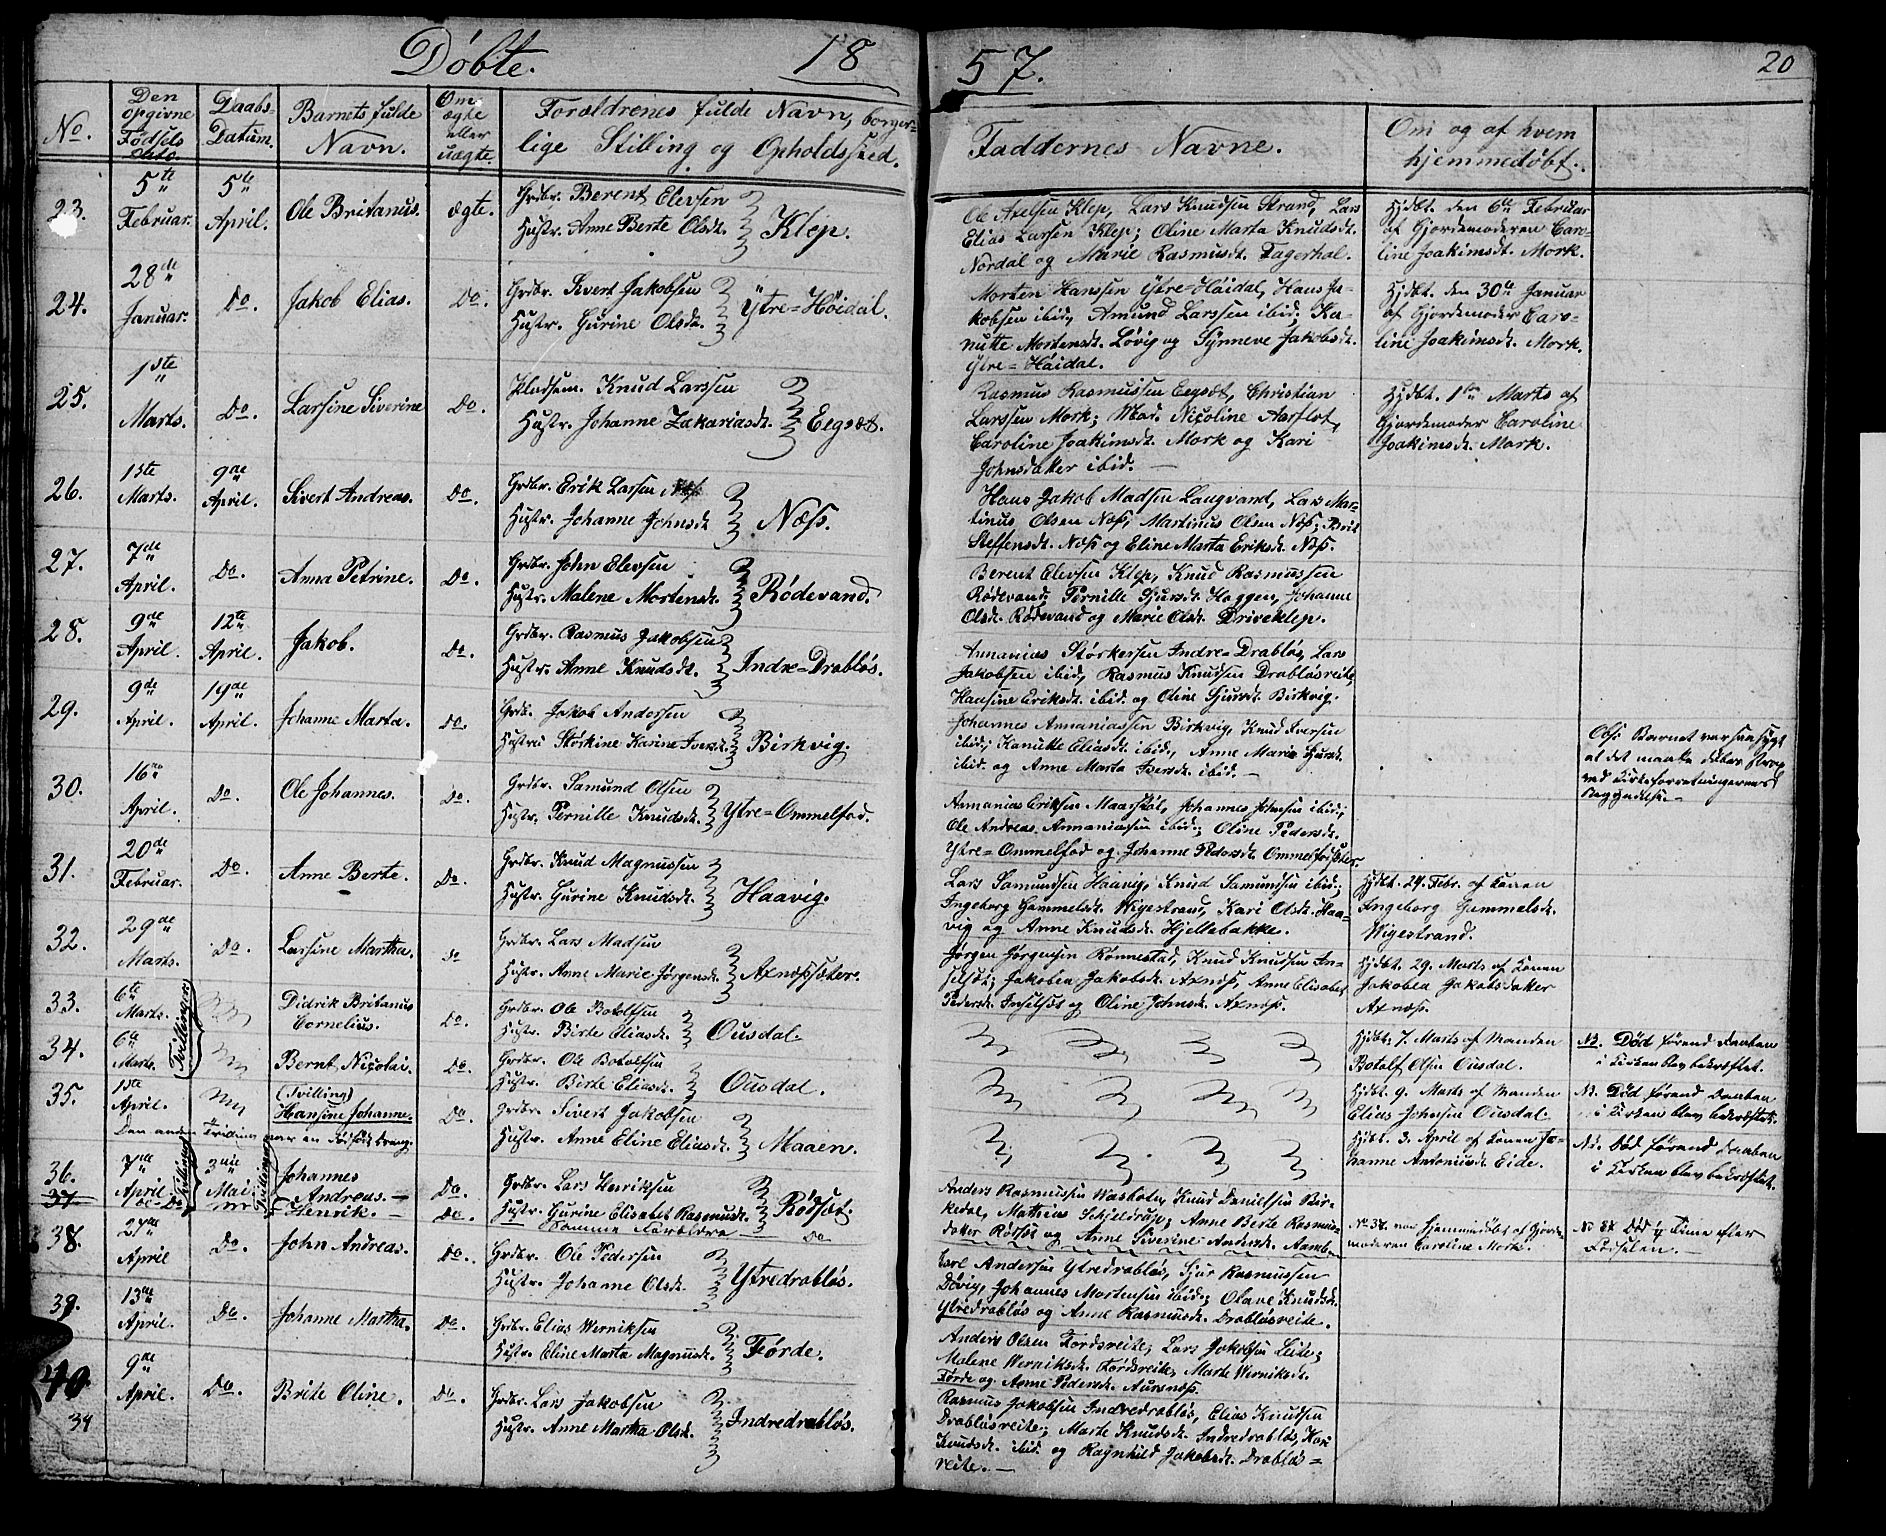 Döbte. 18 57. 20
No.
Den opgivne Födsels dato.
Daabs-Datum.
Barnets fulde Navn.
Om ægte eller uægte.
Forældrenes fulde Navn, borger=
lige Stilling og Opholdssted.
Faddernes Navne.
Om og af hvem
hjemmedöbt.
23. 5te Februar. 5te April. Ole Britanus. ægte.
Grdbr. Berent Elevsen
Hustr. Anne Berte Olsdt. Klep.
Ole Axelsen Klep, Lars Knudsen Strand, Lars
Elias Larsen Klep; Oline Marta Knudsdt.
Nordal og Marie Rasmusdt. Fagerhol.
Hjdbt. den 6te Februar
af Gjordemoderen Caro=
line Joakimsdt. Mork.
24. 28de Januar. Do. Jakob Elias. Do.
Grdbr. Sivert Jakobsen
Hustr. Gurine Olsdt. Ytre=Höidal.
Morten Hanssen Ytre=Höidal, Hans Ja=
kobsen ibid, Amund Larssen ibid; Ka=
nutte Mortensdt. Lövig og Synneve Jakobsdt.
Ytre=Höidal.
Hjdbt. den 30te Januar
af Gjordemoder Caro=
line Joakimsdt. Mork.
25. 1ste Marts. Do. Larsine Siverine Do.
Pladsem. Knud Larssen
Hustr. Johanne Zakariasdt. Eegsæt.
Rasmus Rasmussen Eegsæt, Christian
Larssen Mork; Mad. Nicoline Aarflot,
Caroline Joakimsdt. Mork og Kari
Johnsdatter ibid.
Hjdbt. 1ste Marts af
Gjordemoder Caroline
Joakimsdt. Mork.
26. 1ste Marts. 9de April. Sivert Andreas. Do.
Grdbr. Erik Larsen
Hustr. Johanne Johnsdt. Næss.
Hans Jakob Madsen Laugvand, Lars Mar=
tinus Olsen Næs, Martinus Olsen Næs; Brit
Steffensdt. Næss og Eline Marta Eriksdt. Næss.
27. 7de April. Do. Anna Petrine. Do.
Grdbr. John Elevsen
Hustr. Malene Mortensdt. Rödevand.
Berent Elevsen Klep, Knud Rasmussen
Rödevand; Pernille Sjursdt. Haggen, Johanne
Olsdt. Rödevand og Marie Olsdt. Driveklep.
28. 9de April. 12te April. Jakob. Do.
Grdbr. Rasmus Jakobsen
Hustr. Anne Knudsdt. Indre=Drablös.
Annanias Störkersen Indre=Drablös, Lars
Jakobsen ibid, Rasmus Knudsen Drablösreite,
Hansine Eriksdt. ibid. og Oline Sjursdt. Birkvig.
29. 9de April. 19de April. Johanne Marta. Do.
Grdb. Jakob Andersen
Hustru Störkine Karine Iversdt. Birkvig.
Johannes Annaniassen Birkvig, Knud Iversen
ibid; Kanutte Eliasdt. ibid., Anne Marie Sjursdt.
ibid. og Anne Marta Iversdt. ibid.
Obs: Barnet var saa sygt
at det maatte döbes strax
ved Kirkeforretningernes
Begyndelse.
30. 16de April. Do. Ole Johannes. Do.
Grdbr. Samund Olsen
Hustr. Pernille Knudsdt. Ytre=Ommelfod.
Annanias Eriksen Maarstöl, Johannes Johnsen ibid;
Ole Andreas Annaniassen ibid; Oline Pedersdt.
Ytre=Ommelfod og Johanne Pedersdt.
31. 20de Februar. Do. Anne Berte. Do.
Grdbr. Knud Magnussen
Hustr. Gurine Knudsdt. Haavig.
Lars Samundsen Haavig, Knud Samundsen ibid;
Ingeborg Gammelsdt. Wigestrand, Kari Olsdt. Haa=
vig og Anne Knudsdt. Hjellebakke.
Hjdbt. 24. Febr. af Konen
Ingeborg Gammelsdt.
Wigestrand.
32. 29de Marts. Do. Larsine Martha. Do
Grdbr. Lars Madsen
Hustr. Anne Marie Jörgensdt. Axnæssæter.
Jörgen Jörgensen Rönnestad, Knud Knudsen In=
selset; Jakobea Jakobsdt. Axnæss, Anne Elisabet
Pedersdt. Inselset og Oline Johnsdt. Axnæss.
Hjdbt. 29. Marts af Konen
Jakobea Jakobsdatter
Axnæss.
33. 6te Marts. Tvillinger Didrik Britanus
Cornelius. Do.
Grdbr. Ole Botolfsen
Hustr. Birte Eliasdt. Ousdal.
Hjdbt. 7. Marts af Manden
Botolf Olsen Ousdal.
NB. Död förend Daaben
i Kirken blev bekræftet.
34. 6te Marts. Bernt Nicolai. Do.
Grdbr. Ole Botolfsen
Hustr. Birte Eliasdt. Ousdal.
Hjdbt. 9. Marts af Manden
Elias Johnsen Ousdal.
NB. Död förend Daaben
i Kirken blev bekræftet.
35. 1ste April. (Tvilling)
Hansine Johanne. Do.
Den anden Tvilling var en
Grdbr. Sivert Jakobsen
Hustr. Anne Eline Eliasdt. Maaen.
Hjdbt. 3. April af Konen Jo=
hanne Antoniusdt. Eide.
NB. Död förend Daaben
i Kirken blev bekræftet.
36. 7de April. 3die Mai Tvillinger Johannes
Andreas. Do.
37 Do Henrik. Do.
Grdbr. Lars Henriksen
Hustr. Gurine Elisabet Rasmusdt. Rödsæt.
Samme Forældre Do
Anders Rasmussen Wasbotn, Knud Danielsen Bir=
kedal, Mathias Schjeldrup; Anne Berte Rasmus=
datter Rödsæt og Anne Siverine Andersdt.
No 37. var hjemmedöbt af Gjorde=
moderen Caroline Mork.
No 37 Död ¼ Time efter
Födselen.
38. 27de April Do. John Andreas. Do.
Grdbr. Ole Pedersen
Hustr. Johanne Olsdt. Ytredrablös.
Carl Andersen Ytredrablös, Sjur Rasmussen
Dövig, Johannes Mortensen ibid; Olave Knudsdt.
Ytredrablös og Anne Rasmusdt. Drablösreite.
39. 13de April. Do. Johanne Martha. Do.
Grdbr. Elias Werniksen
Hustr. Eline Marta Magnusdt. Förde.
Anders Olsen Fördsreite, Lars Jakobsen Leite;
Malene Werniksdt. Fördsreite, Marte Werniksdt.
Förde og Anne Pedersdt. Aursnæss.
40 9de April. Do. Brite Oline. Do.
Grdbr. Lars Jakobsen
Hustr. Anne Martha Olsdt. Indredrablös.
Rasmus Jakobsen Indredrablös, Elias Knudsen
Drablösreite; Marte Knudsdt. Indredrablös, Kari
Knudsdt. ibid. og Ragnhild Jakobsdt. Drablös=
reite.
34